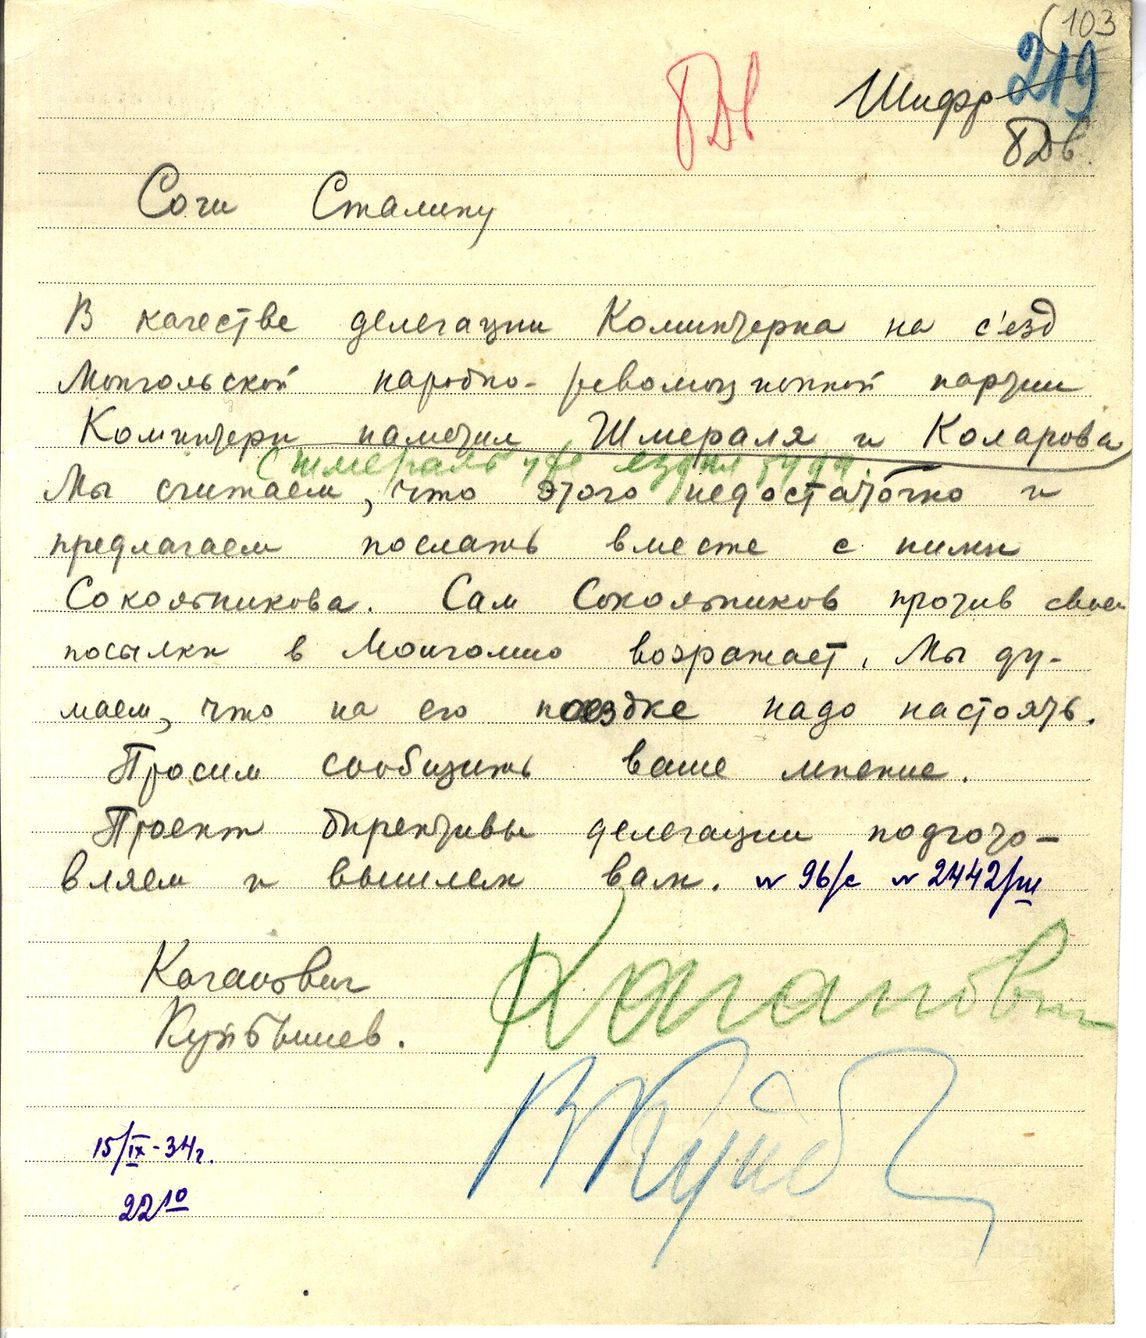 (103
219
Шифр
БДв
БДв.
Сочи Сталину
В качестве делегации Коминтерна на с'езд
Монгольской народно-революционной партии
Коминтерн наметил Шмераля и Коларова
(Шмераль уже ездил туда.
Мы считаем, что этого недостаточно и
предлагаем послать вместе с ними
Сокольникова. Сам Сокольников против своей
посылки в Монголию возражает. Мы ду-
маем, что на его поездке надо настоять.
Просим сообщить ваше мнение.
Проект директивы делегации подгото-
вляем и вышлем вам. № 96/с № 2442/ш
Каганович
Куйбышев.
Каганович
В Куйб
15/IX-34г.
22 10